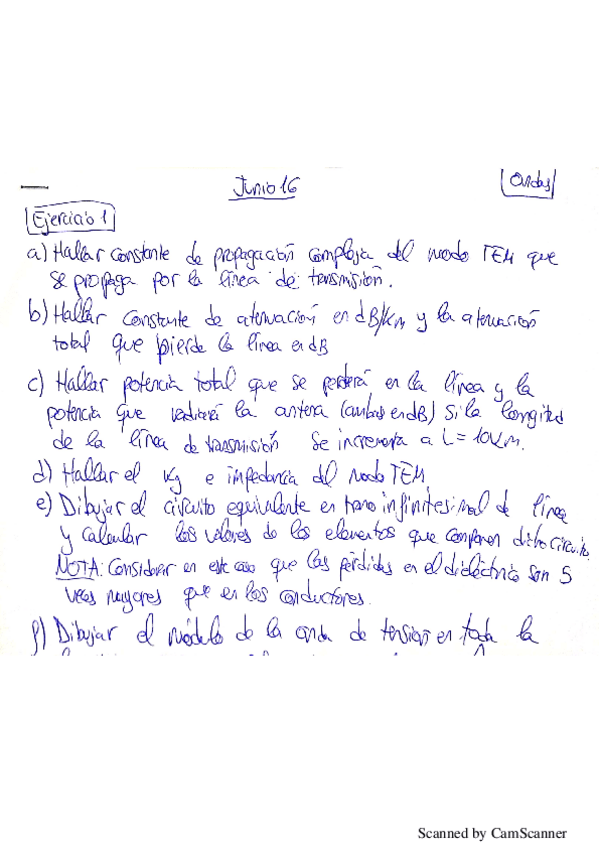 Junio 16
Ondas
Ejercicio 1
a) Hallar constante de propagación compleja del modo TEM que
se propaga por la línea de transmisión.
b) Hallar constante de atenuación en dB/Km y la atenuación
total que pierde la línea en dB
c) Hallar potencia total que se perderá en la línea y la
potencia que radiará la antena (ambas en dB) si la longitud
de la línea de transmisión se incrementa a L=10Km.
d) Hallar el Kg e impedancia del modo TEM.
e) Dibujar el circuito equivalente en tramo infinitesimal de línea
y calcular los valores de los elementos que componen dicho circuito.
NOTA: Considerar en este caso que las pérdidas en el dieléctrico son 5
veces mayores que en los conductores.
f) Dibujar el módulo de la onda de tensión en toda la
Scanned by CamScanner